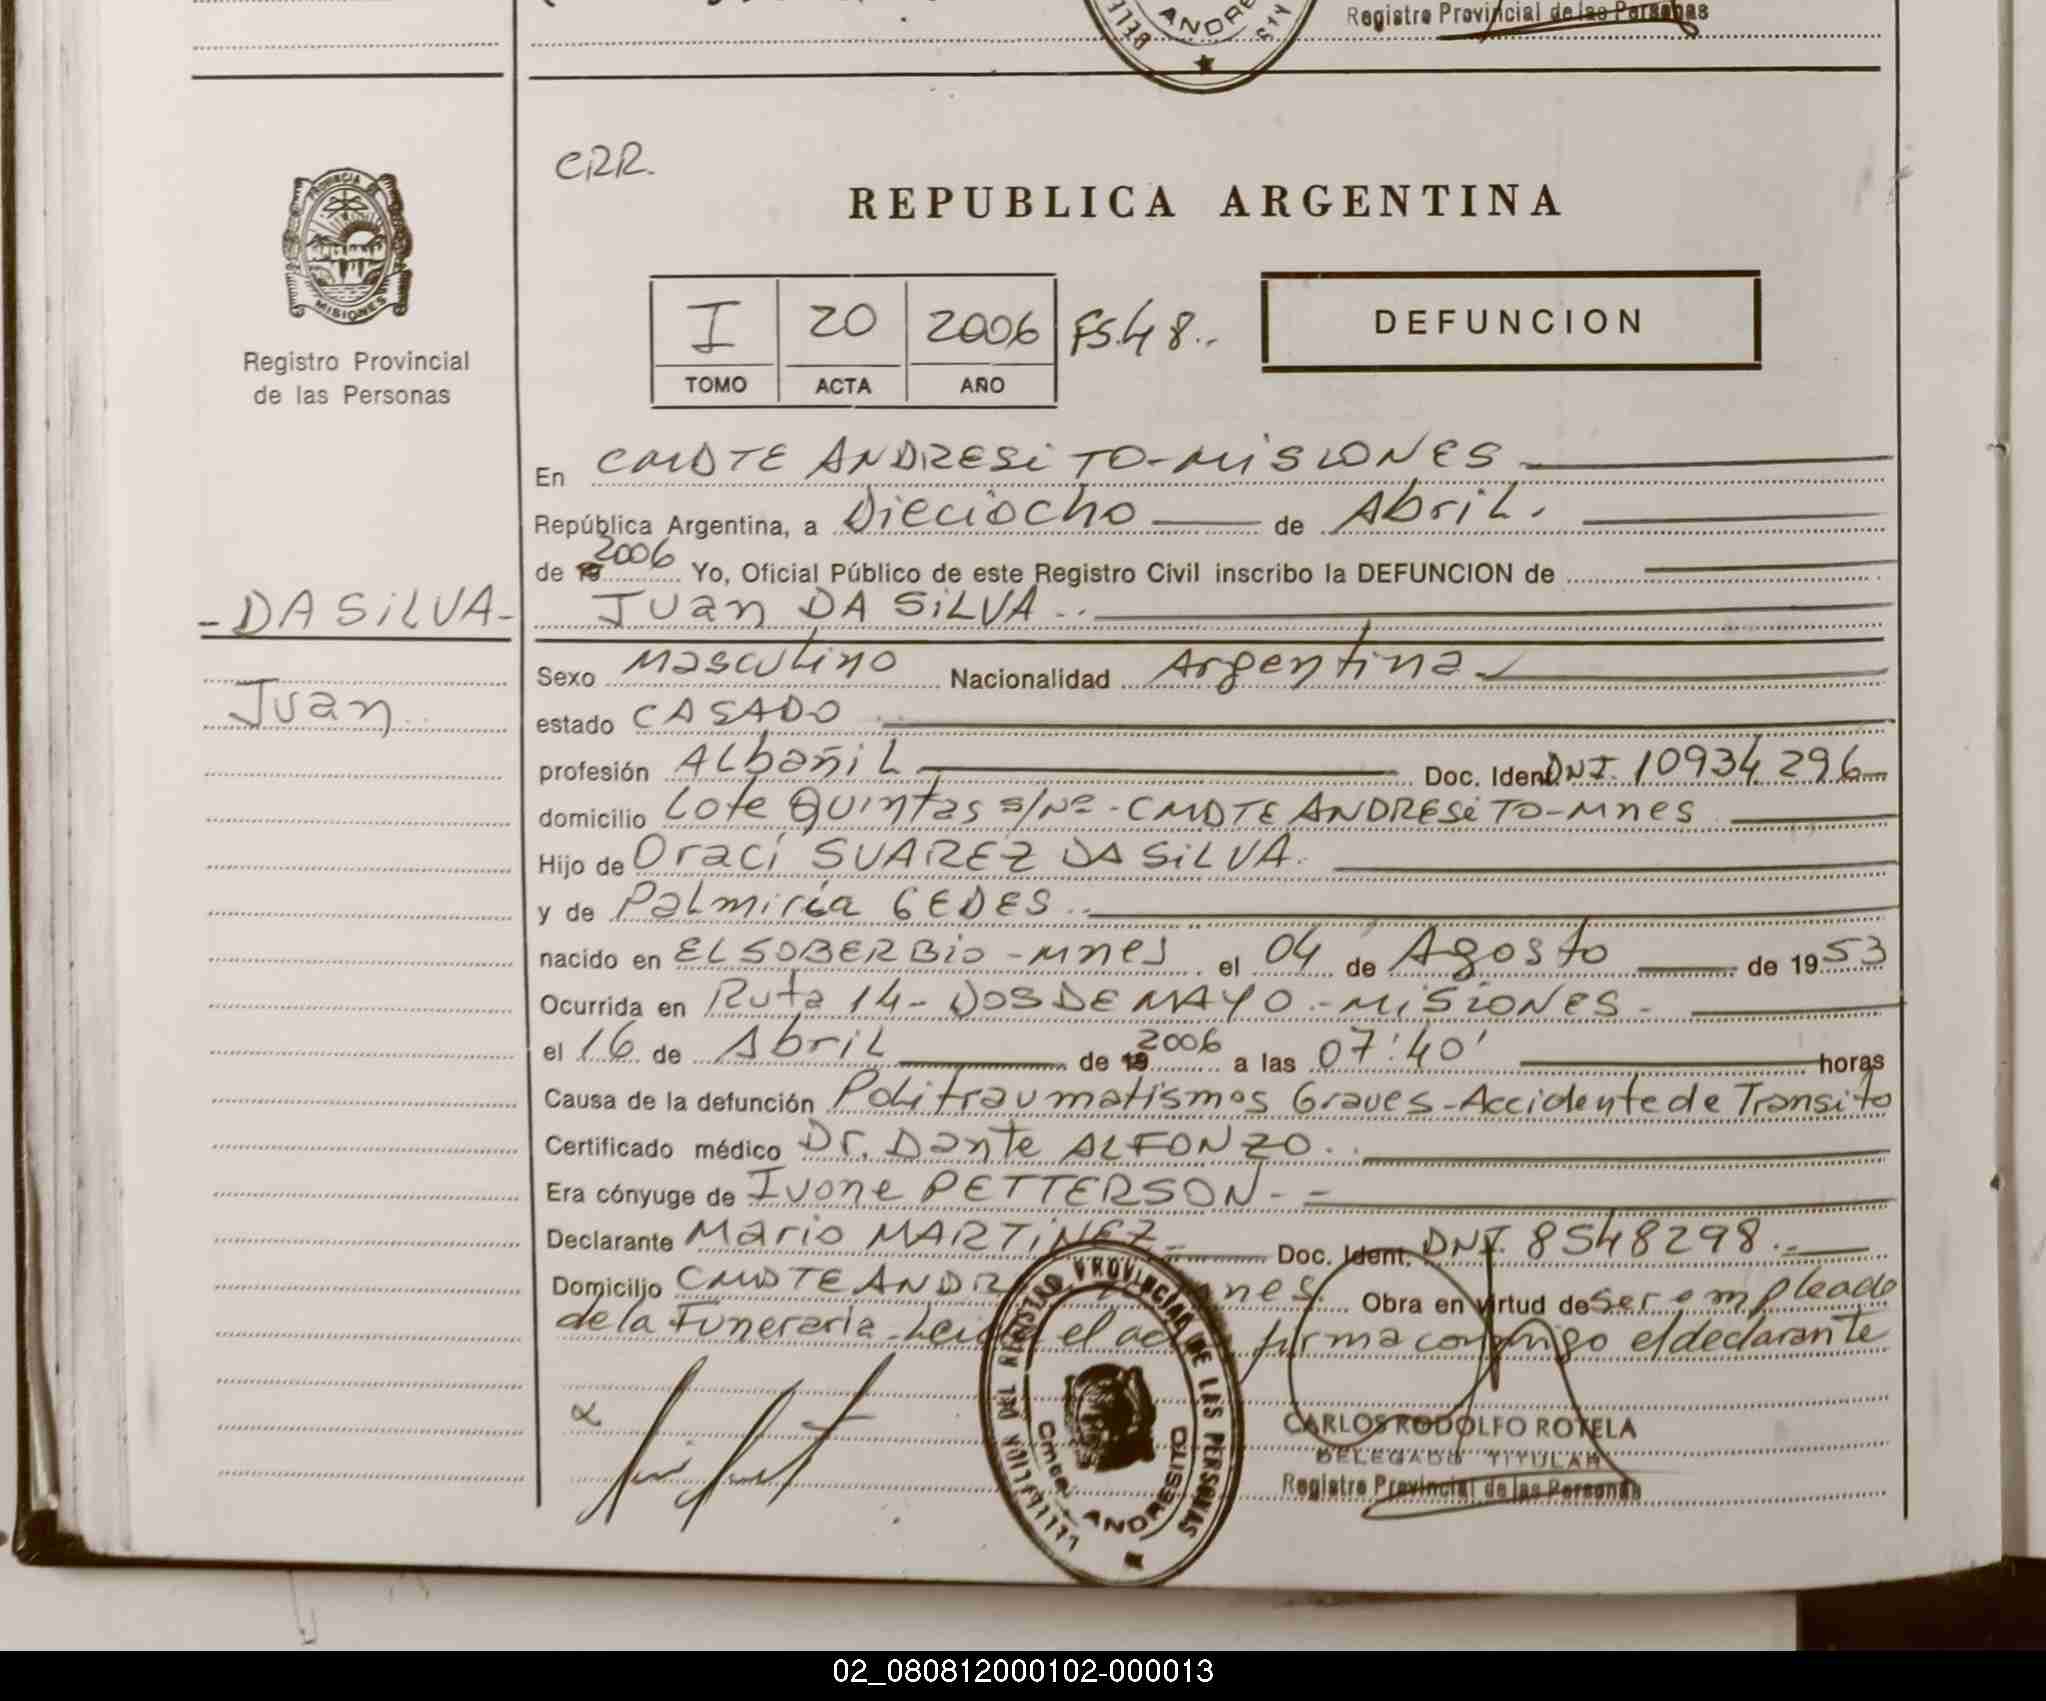 Registro Provincial de las Personas
ANDRE
CRR.
REPUBLICA ARGENTINA
PROVINCIA DE
MISIONES
Registro Provincial
de las Personas
I 20 2006 FS.48..
TOMO ACTA AÑO
DEFUNCION
En CMDTE ANDRESiTO-MiSIONES
República Argentina, a Dieciocho de Abril.
de 19 2006 Yo, Oficial Público de este Registro Civil inscribo la DEFUNCION de
-DA SiLVA-
Juan DA SiLVA..
Juan
Sexo Masculino Nacionalidad Argentina
estado CASADO
profesión Albañil Doc. Ident. DNI. 10934296
domicilio Lote Quintas s/Nº-CMDTE ANDRESiTO-Mnes
Hijo de Oraci SUAREZ DA SiLVA.
y de Palmiria GEDES..
nacido en EL SOBERBiO-Mnes el 04 de Agosto de 1953
Ocurrida en Ruta 14-DOS DE MAYO.-MiSIONES-
el 16 de Abril de 19 2006 a las 07:40' horas
Causa de la defunción Politraumatismos Graves-Accidente de Transito
Certificado médico Dr. Dante ALFONZO.
Era cónyuge de Ivone PETTERSON--
Declarante Mario MARTiNEZ Doc. Ident. DNI. 8548298.-
Domicilio CMDTE ANDR nes. Obra en virtud de ser empleado
de la Funeraria firma conmigo el declarante
DEL REGISTRO PROVINCIAL DE LAS PERSONAS
ANDRESITO
CARLOS RODOLFO ROTELA
DELEGADO TITULAR
Registro Provincial de las Personas
02_080812000102-000013